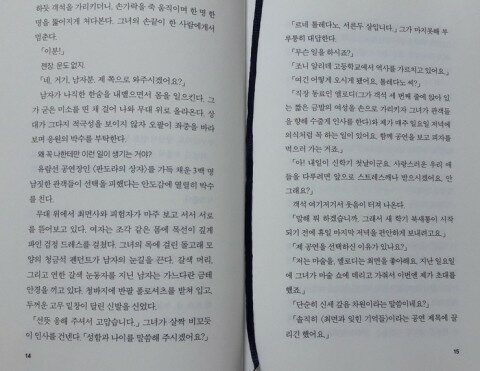 하듯 객석을 가리키더니, 손가락을 죽 움직이며 한 명 한
명을 뚫어지게 쳐다본다. 그녀의 손끝이 한 사람에게서
멈춘다.
「이분!」
젠장. 운도 없지.
「네, 거기, 남자분. 제 쪽으로 와주시겠어요?」
남자가 나직한 한숨을 내뱉으면서 몸을 일으킨다. 그
가 굳은 미소를 띤 채 걸어 나와 무대 위로 올라온다. 상
대가 그다지 적극성을 보이지 않자 오팔이 좌중을 바라
보며 응원의 박수를 부탁한다.
왜 꼭 나한테만 이런 일이 생기는 거야?
유람선 공연장인 〈판도라의 상자〉를 가득 채운 3백 명
남짓한 관객들이 선택을 피했다는 안도감에 열렬히 박수
를 친다.
무대 위에서 최면사와 피험자가 마주 보고 서서 서로
를 뜯어보고 있다. 여자는 조각 같은 몸에 목선이 깊게
파인 검정 드레스를 걸쳤다. 그녀의 목에 걸린 돌고래 모
양의 청금석 펜던트가 남자의 눈길을 끈다. 갈색 머리,
그리고 연한 갈색 눈동자를 지닌 남자는 가느다란 금테
안경을 끼고 있다. 청바지에 반팔 폴로셔츠를 받쳐 입고,
두꺼운 고무 밑창이 달린 신발을 신었다.
「선뜻 응해 주셔서 고맙습니다.」 그녀가 살짝 비꼬듯
이 인사를 건넨다. 「성함과 나이를 말씀해 주시겠어요?」
14
「르네 톨레다노, 서른두 살입니다.」 그가 마지못해 부
루퉁히 대답한다.
「무슨 일을 하시죠?」
「조니 알리데 고등학교에서 역사를 가르치고 있어요.」
「여긴 어떻게 오시게 됐어요, 톨레다노 씨?」
「직장 동료인 엘로디(그가 객석 세 번째 줄에 앉아 있
는 짧은 금발의 여성을 손으로 가리키자 그녀가 관객들
을 향해 수줍게 인사를 한다)와 제가 매주 일요일 저녁에
의식처럼 꼭 하는 일이 있어요. 함께 공연을 보고 피자를
먹으러 가는 거죠.」
「아! 내일이 신학기 첫날이군요. 사랑스러운 우리 애
들을 다루려면 앞으로 스트레스깨나 받으시겠어요, 안
그래요?」
객석 여기저기서 웃음이 터져 나온다.
「말해 뭐 하겠습니까. 그래서 새 학기 북새통이 시작
되기 전에 휴일 마지막 저녁을 편안하게 보내려고요.」
「제 공연을 선택하신 이유가 있나요?」
「저는 마술을, 엘로디는 최면을 좋아해요. 지난 일요일
에 그녀가 마술 쇼에 데리고 가줘서 이번엔 제가 초대를
했죠.」
「단순히 신세 갚음 차원이라는 말씀이세요?」
「솔직히 〈최면과 잊힌 기억들〉이라는 공연 제목에 끌
리긴 했어요.」
15